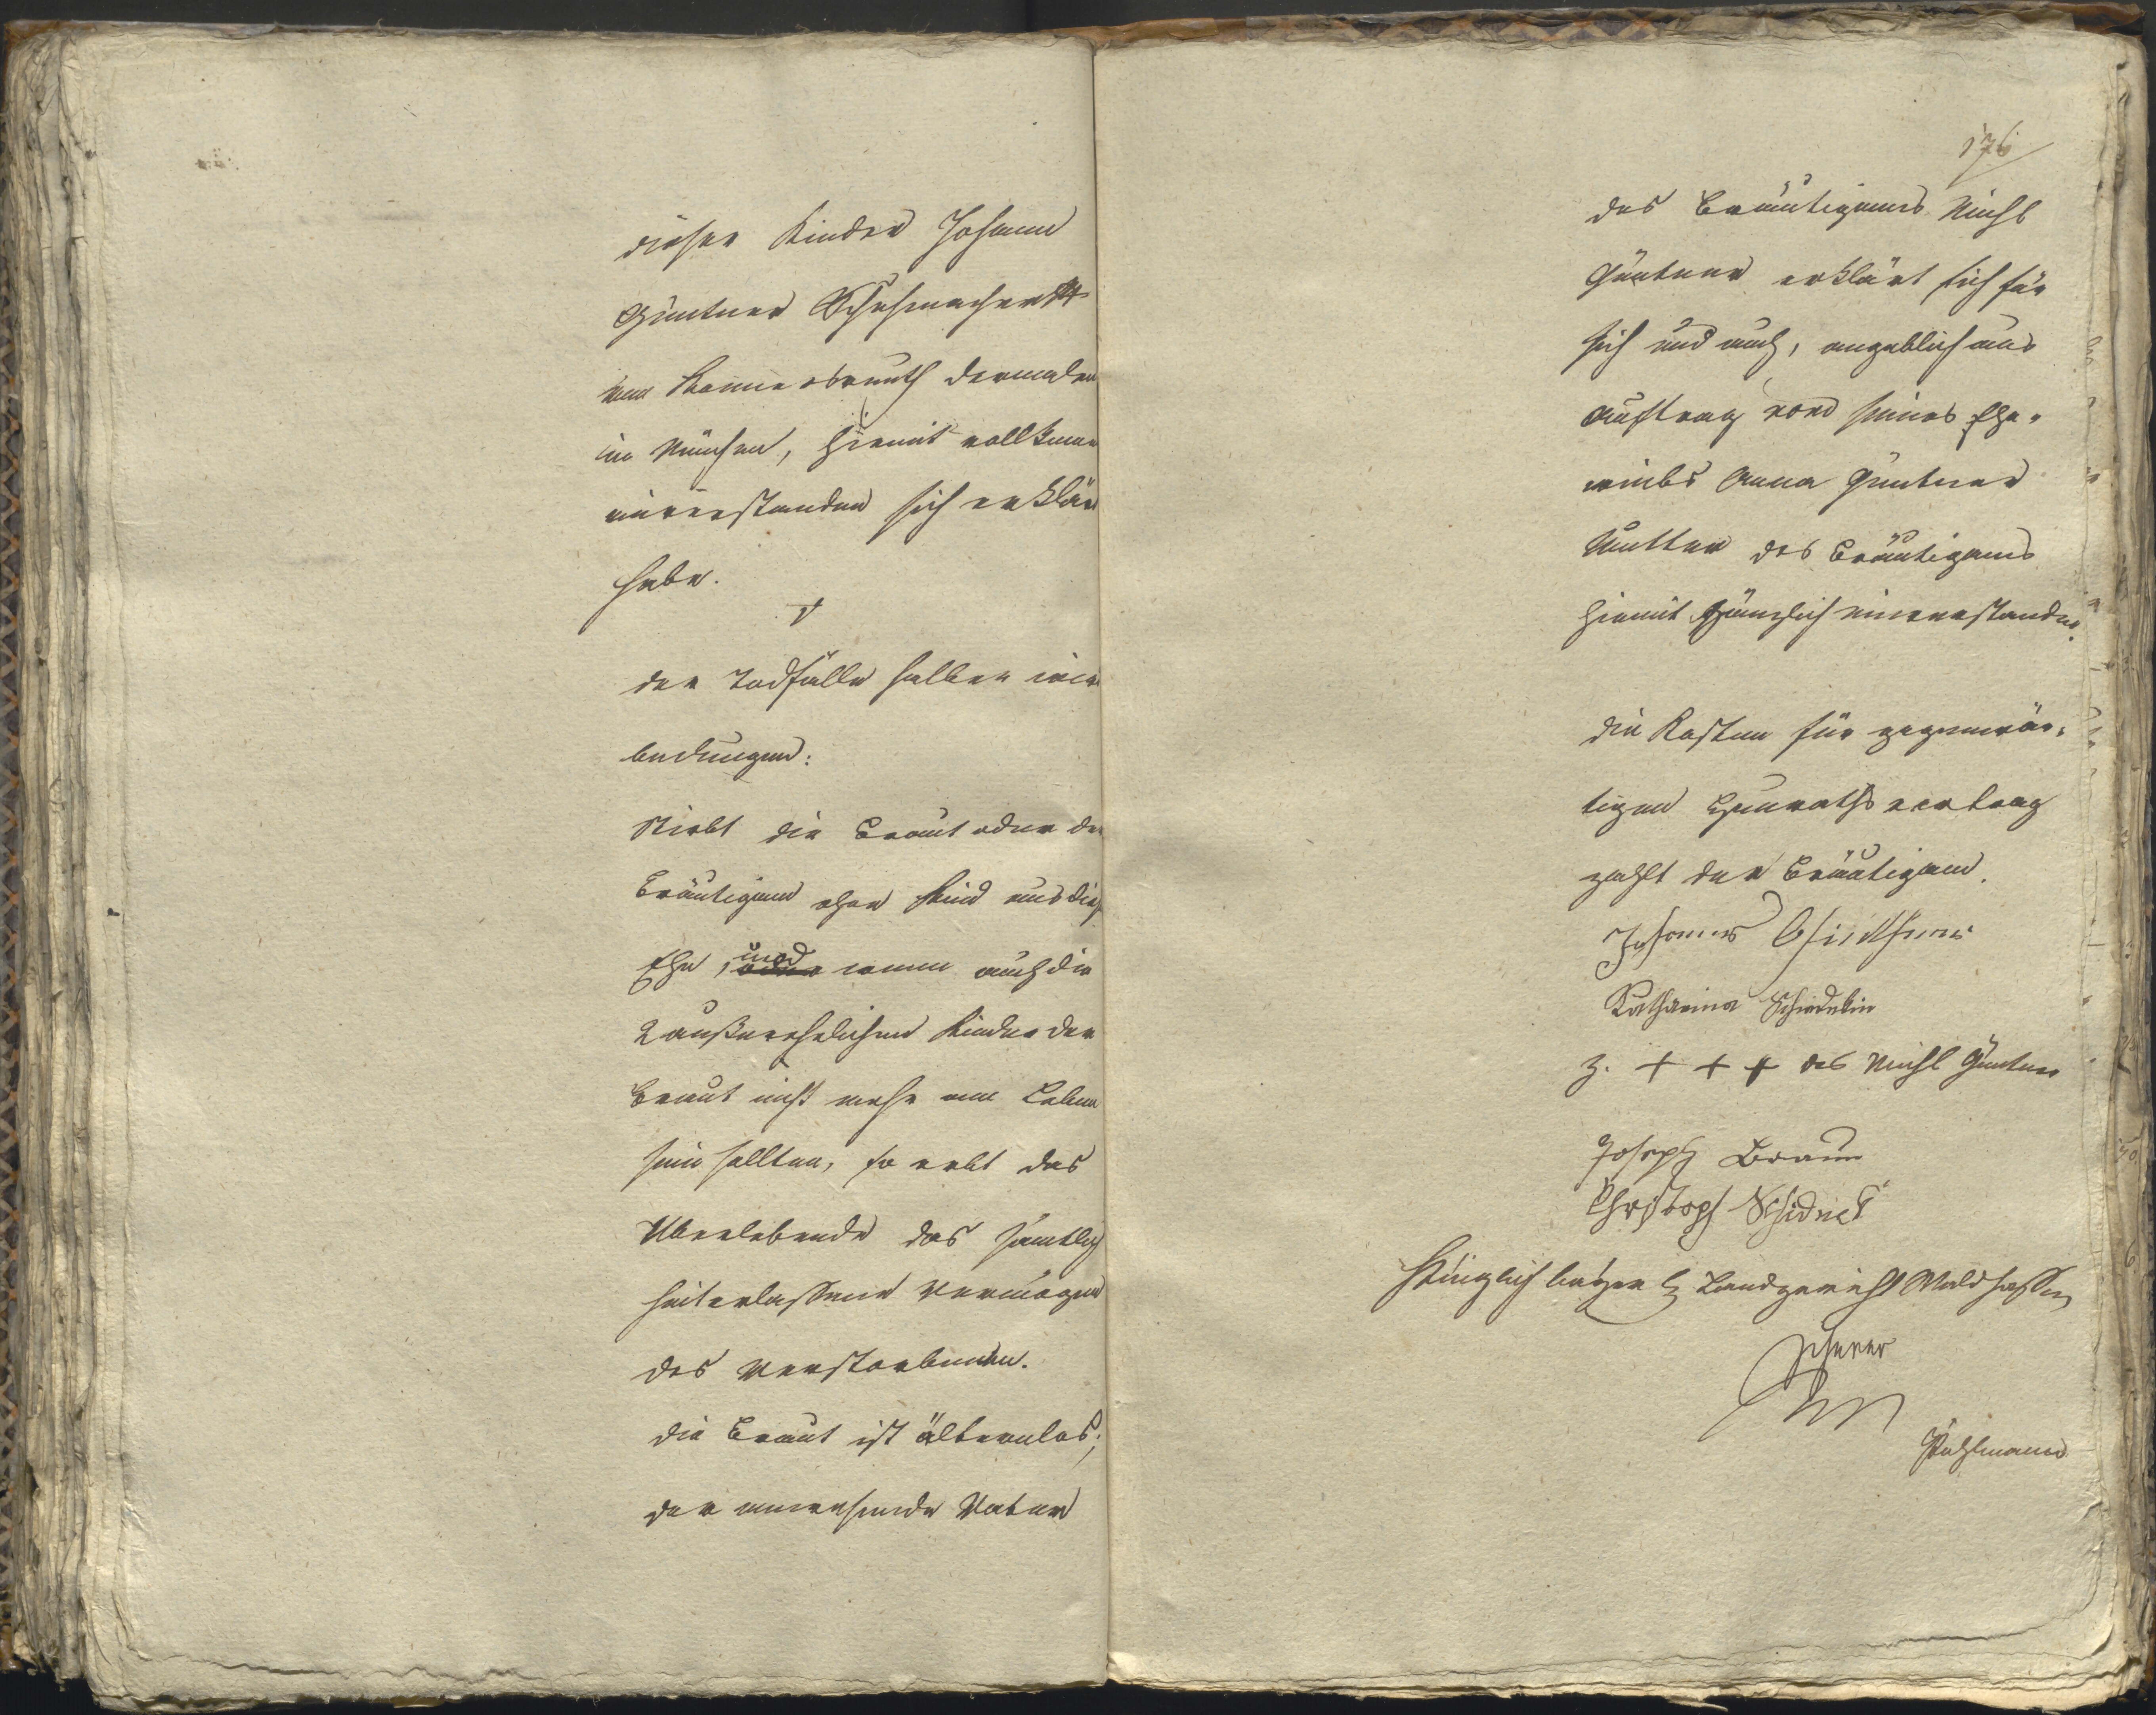 dieser Kinder Johann
Güntner Schuhmacher
von dermalen
in München, hiemit vollkomm
einverstanden sich erklärt
habe.
der Todfälle halber wird
bedungen:
Stirbt die Braut oder der
Bräutigam ohne Kind aus dies
Ehe, und wenn auch die
2 außerehelichen Kinder der
Braut nicht mehr am Leben
sein sollten, so erbt das
Überlebende das sämtlich
hinterlassene Vermögen
des Verstorbenen.
die Braut ist älternlos;
der anwesende Vater
176
des Bräutigams Michl
Güntner erklärt sich für
sich und auch, angeblich aus
Auftrag seines Ehe-
weibs Anna Güntner
Mutter des Bräutigams
hiemit gänzlich einverstanden.
die Kosten für gegenwär-
tigen Heuraths vertrag
zahlt der Bräutigam.
Johannes
Katharina Schiedlin
Z. + + + des Michl Güntner
Joseph Braun
Christoph
Königlich baÿer. Landgericht Waldsassen
Pöhlmann